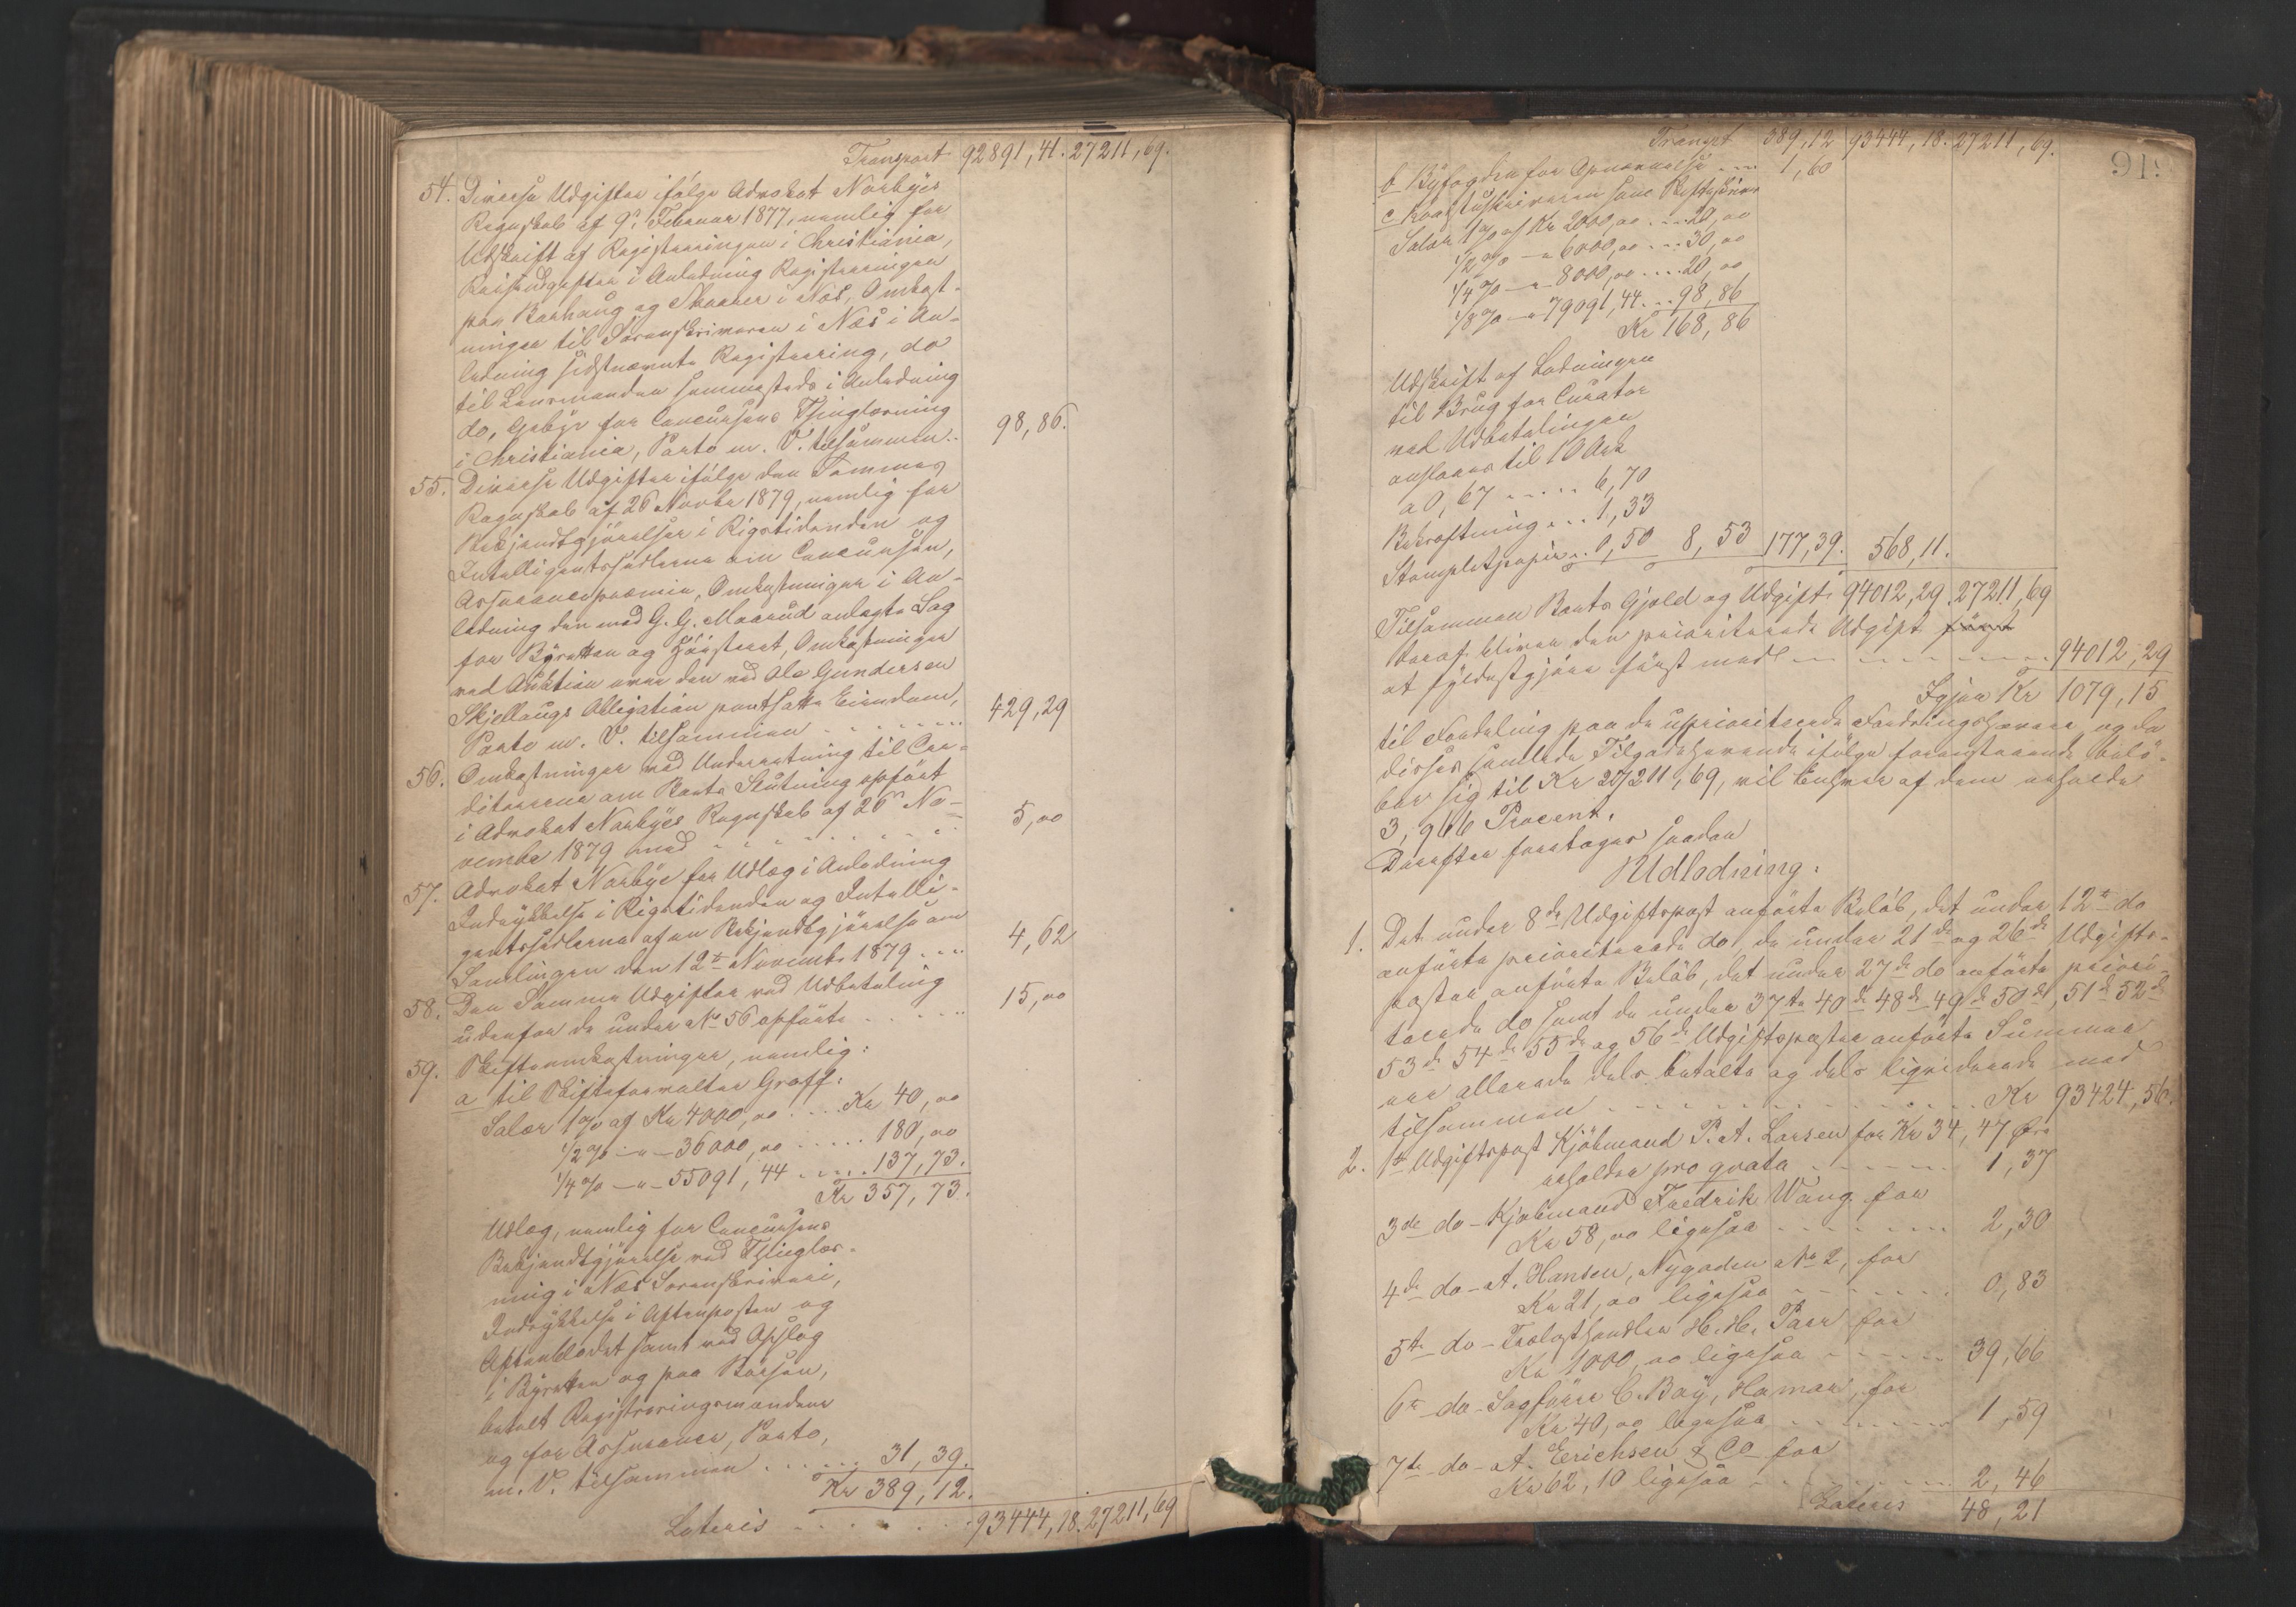 Transport 92891,41. 27211,69.
54. Diverse Udgifter ifølge Advokat Norbyes
Regnskab af 9de Februar 1877, nemlig for
Udskrift af Registreringen i Christiania,
Reiseudgifter i Anledning Registreringen
paa Borhaug og Skaarer i Næs, Omkost-
ninger til Sorenskriveren i Næs i An-
ledning sidstnævnte Registrering, do
til Lensmanden sammesteds i Anledning
do, Gebyr for Concursens Thinglæsning
i Christiania, Porto m. V. tilsammen.. 98,86.
55. Diverse Udgifter ifølge den Sammes
Regnskab af 26 Novbr 1879, nemlig for
Bekjendtgjørelser i Rigstidenden og
Intelligentssedlerne om Concursen,
Assurancepræmie, Omkostninger i An-
ledning den mod G. G. Maarud anlagte Sag
for Byretten og Høiesteret, Omkostninger
ved Auktion over den ved Ole Gundersen
Skjellaugs Obligation pantsatte Eiendom,
Porto m. V. tilsammen . . . . . . 429,29
56. Omkostninger ved Underretning til Cre-
ditorerne om Boets Slutning opført
i Advokat Norbyes Regnskab af 26 No-
vember 1879 med . . . . . . . . 5,00
57. Advokat Norbye for Udlæg i Anledning
Indrykkelse i Rigstidenden og Intelli-
gentssedlerne af en Bekjendtgjørelse om
Samlingen den 12te November 1879 .... 4,62
58. Den Samme Udgifter ved Udbetaling
udenfor de under No 56 opførte . . . . . . 15,00
59. Skifteomkostninger, nemlig:
a til Skifteforvalter Graff:
Salær 1% af Kr 4000,00 .... Kr 40,00
1/2% -"- 36000,00 ..... 180,00
1/4% -"- 55091,44 ..... 137,73.
Kr 357,73.
Udlæg, nemlig for Concursens
Bekjendtgjørelse ved Thinglæs-
ning i Næs Sorenskriveri,
Indrykkelse i Aftenposten og
Aftenbladet samt ved Opslag
i Byretten og paa Børsen,
betalt Registreringsmændene
og for Assurance, Porto,
m. V. tilsammen ...... 31,39.
Kr 389,12.
Lateris . . . . . . 93444,18. 27211,69
91.
Transpt 389,12 93444,18. 27211,69.
b Byfogden for Opnævnelse ... 1,60
c Raadstueskriveren som Skifteskriver
Salær 1% af Kr 2000,00 .... 20,00
1/2% -"- 6000,00 ... 30,00
1/4% -"- 8000,00 .... 20,00
1/8% -"- 79091,44 ... 98,86
Kr 168,86
Udskrift af Lodningen
til Brug for Curator
ved Udbetalingen
anslaaes til 10 Ark
a 0,67 ..... 6,70
Bekræftning ... 1,33
Stempletpapir .. 0,50 8,53 177,39. 568,11.
Tilsammen Boets Gjeld og Udgift: 94012,29. 27211,69
Heraf bliver den prioriterede Udgift først
at fyldestgjøre først med . . . . . . . . 94012,29
Igjen Kr 1079,15
til Fordeling paa de uprioriterede Fordringshavere, og da
disses samlede Tilgodehavende ifølge foranstaaende belø-
ber sig til Kr 27211,69, vil Enhver af dem erholde
3,966 Procent.
Derefter foretages saadan
Udlodning:
1. Det under 8de Udgiftspost anførte Beløb, det under 12te do
anførte prioriterede do, de under 21de og 26de Udgifts-
poster anførte Beløb, det under 27de do anførte priori-
terede do samt de under 37te 40de 48de 49de 50de, 51de 52de
53de 54de 55de og 56de Udgiftsposter anførte Summer
ere allerede dels betalte og dels liqviderede med
tilsammen . . . . . . . . . . . Kr 93424,56.
2. 1te Udgiftspost Kjøbmand P. A. Larsen for Kr 34,47 Øre
erholder pro qvota . . . . . . 1,37
3de do - Kjøbmand Fredrik Wang for
Kr 58,00 ligesaa . . . . . . . 2,30
4de do - A. Hansen, Nygaden No 2, for
Kr 21,00 ligesaa . . . . . . . 0,83
5te do - Trælasthandler H. H. Paar for
Kr 1000,00 ligesaa . . . . . . 39,66
6te do - Sagfører C. Bay, Hamar, for
Kr 40,00 ligesaa . . . . . . . 1,59
7de do - A. Erichsen & Co for
Kr 62,10 ligesaa . . . . . . . 2,46
Lateris 48,21